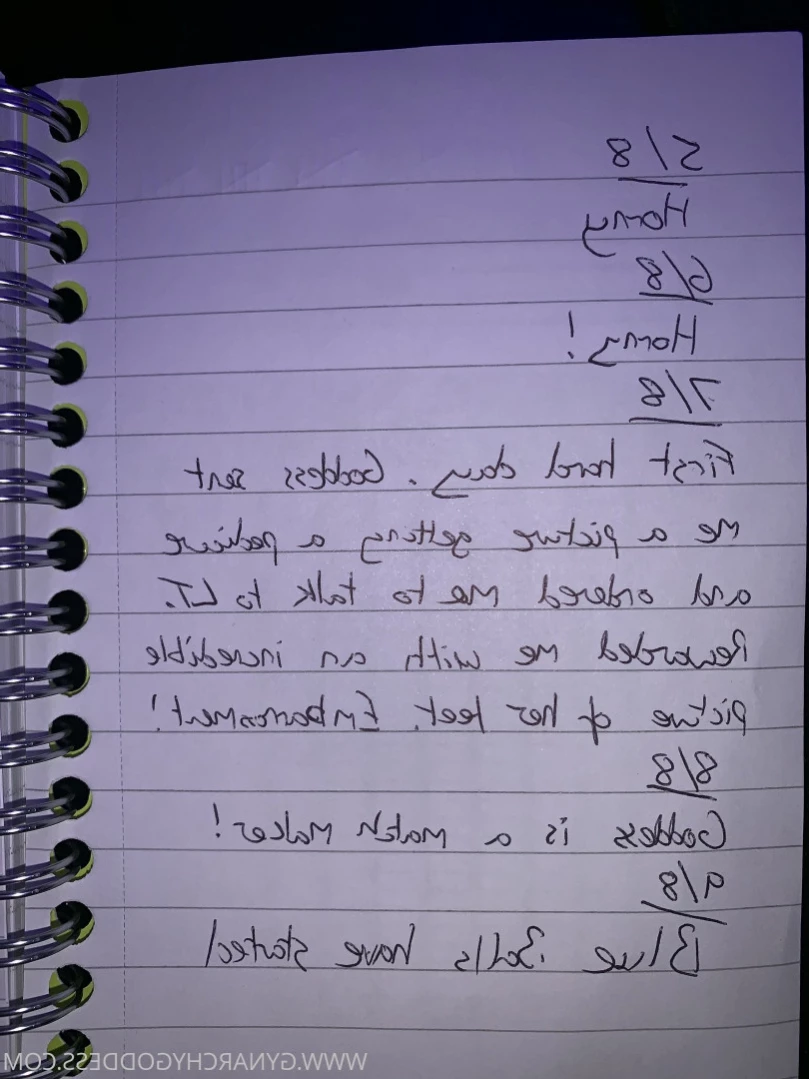 5/8
Horny
6/8
Horny!
7/8
First hard day. Goddess sent
me a picture getting a pedicure
and ordered me to talk to LT.
Rewarded me with an incredible
picture of her feet. Embarrassment!
8/8
Goddess is a match maker!
9/8
Blue Balls have started
WWW.GYNARCHYGODDESS.COM